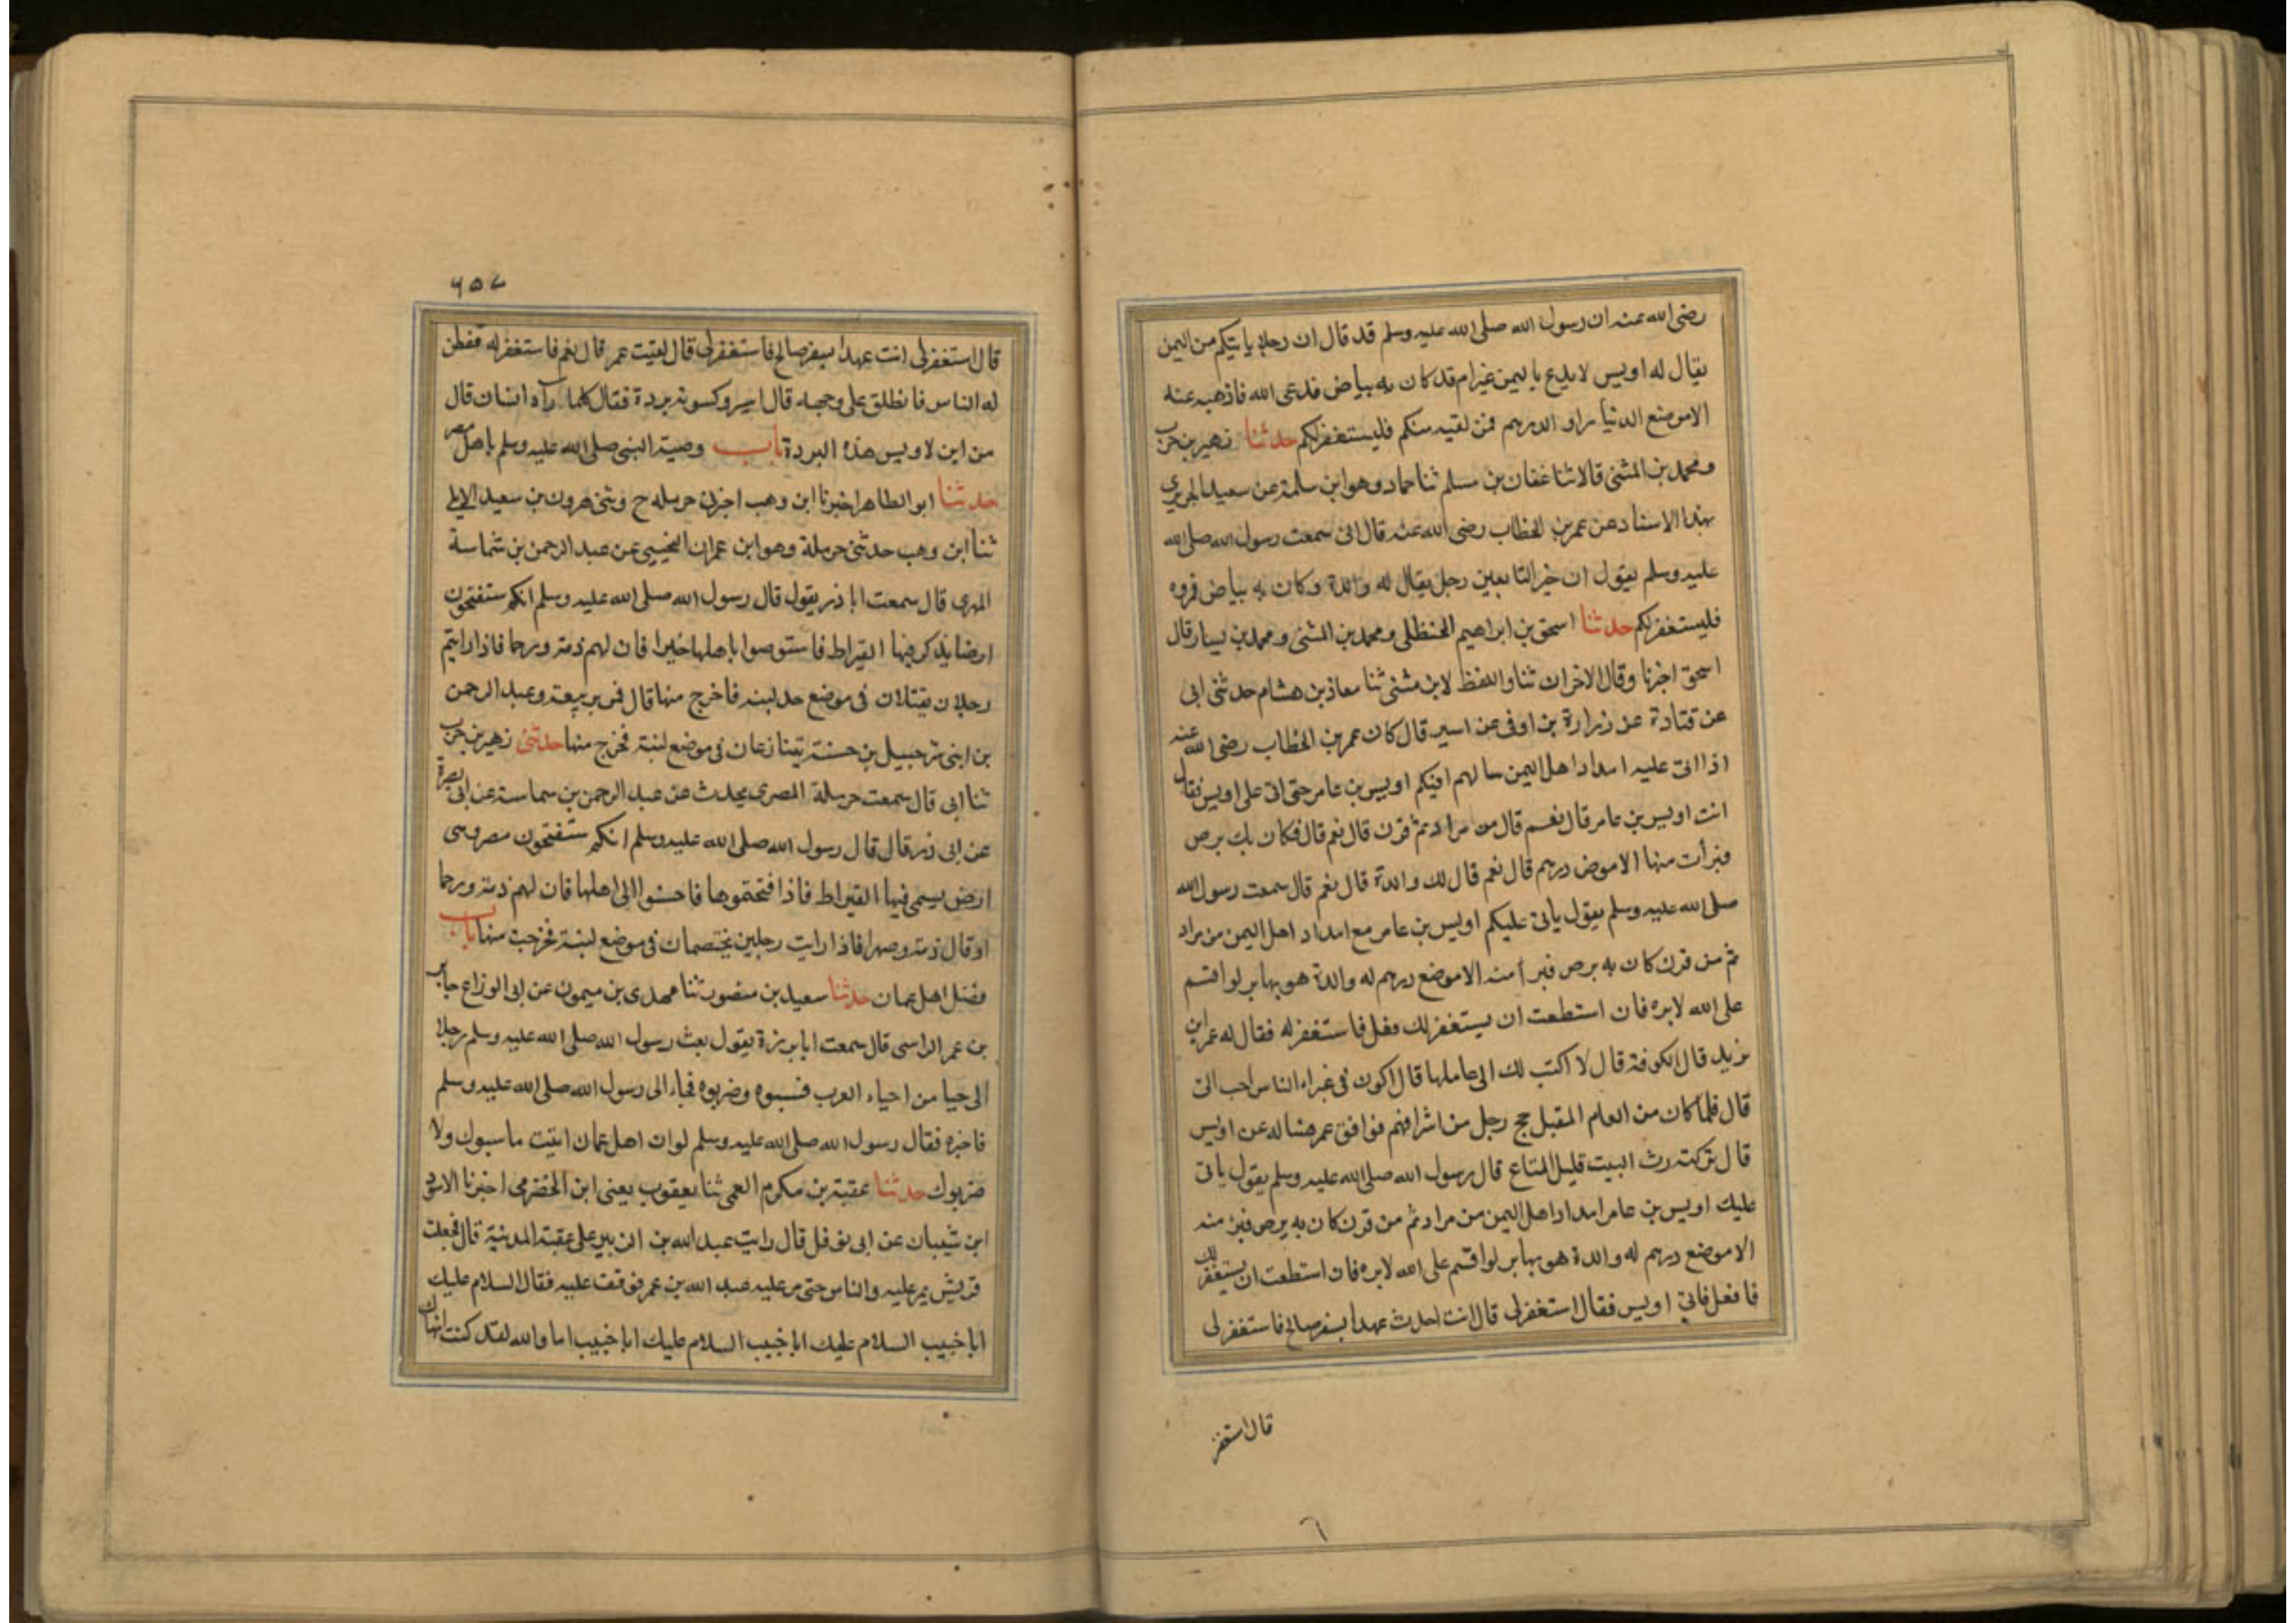 رضى الله عنه ان رسول الله صلى الله عليه وسلم قد قال ان رجلا ياتيكم من اليمن
يقال له اويس لا يدع باليمن غير ام قد كان به بياض فدعى الله فاذهبه عنه
الا موضع الدنيار او الدرهم فمن لقيه منكم فليستغفر لكم حدثنا زهير بن حرب
ومحمد بن المثنى قالا ثنا عفان بن مسلم ثنا حماد وهو ابن سلمة عن سعيد الجريري
بهذا الاسناد عن عمر بن الخطاب رضى الله عنه قال انى سمعت رسول الله صلى الله
عليه وسلم يقول ان خير التابعين رجل يقال له والدة وكان به بياض فروه
فليستغفر لكم حدثنا اسحق بن ابراهيم الحنظلى ومحمد بن المثنى ومحمد بن بسار قال
اسحق اخبرنا وقال الاخران ثنا واللفظ لابن مثنى ثنا معاذ بن هشام حدثنى ابى
عن قتادة عن زرارة بن اوفى عن اسير قال كان عمر بن الخطاب رضى الله عنه
اذا اتى عليه امداد اهل اليمن سالهم افيكم اويس بن عامر حتى اتى على اويس فقال
انت اويس بن عامر قال نعم قال من مراد ثم قرن قال نعم قال فكان بك برص
فبرأت منها الا موض درهم قال نعم قال لك والدة قال نعم قال سمعت رسول الله
صلى الله عليه وسلم يقول ياتى عليكم اويس بن عامر مع امداد اهل اليمن من مراد
ثم من قرن كان به برص فبرأ منه الا موضع درهم له والدة هو بها بر لو اقسم
على الله لابره فان استطعت ان يستغفر لك فعل فاستغفر له فقال له عمر اين
يزيد قال الكوفة قال لا اكتب لك الى عاملها قال اكون فى غبراء الناس احب الى
قال فلما كان من العام المقبل حج رجل من اشرافهم فوافق عمر فساله عن اويس
قال تركته رث البيت قليل المتاع قال رسول الله صلى الله عليه وسلم يقول ياتى
عليك اويس بن عامر امداد اهل اليمن من مراد ثم من قرن كان به برص فبرَ منه
الا موضع درهم له والدة هو بها بر لو اقسم على الله لابره فان استطعت ان يستغفر لك
فافعل فاتى اويس فقال استغفر لى قال انت احدث عهدا بسفر صالح فاستغفر لى
قال استغفر
٦
٦٥٧
قال استغفر لى انت عهدا بسفر صالح فاستغفر لى قال لقيت عمر قال نعم فاستغفر له ففطن
له الناس فانطلق على وجهه قال اسير وكسوته بردة فقال كلما رآه انسان قال
من اين لاويس هذه البردة باب وصية النبى صلى الله عليه وسلم باهل مصر
حدثنا ابو الطاهر اخبرنا ابن وهب اخبرنى حرمله ح وثنى هرون بن سعيد الايلى
ثنا ابن وهب حدثنى حرملة وهو ابن عمران التجيبى عن عبد الرحمن بن شماسة
المهرى قال سمعت ابا ذر يقول قال رسول الله صلى الله عليه وسلم انكم ستفتحون
ارضا يذكر فيها القيراط فاستوصوا باهلها خيرا فان لهم ذمة ورحما فاذا رايتم
رجلان يقتلان فى موضع حد لبنه فاخرج منها قال فمر بربيعة وعبد الرحمن
بن ابنى شرحبيل بن حسنة يتنازعان فى موضع لبنة فخرج منها حدثنى زهير بن حرب
ثنا ابى قال سمعت حرملة المصرى يحدث عن عبد الرحمن بن سماسة عن ابى بصرة
عن ابى ذر قال قال رسول الله صلى الله عليه وسلم انكم ستفتحون مصر وهى
ارض يسمى فيها القيراط فاذا فتحتموها فاحسنوا الى اهلها فان لهم ذمة ورحما
او قال ذمة وصهرا فاذا رايت رجلين يختصمان فى موضع لبنة فخرجت منها باب
فضل اهل عمان حدثنا سعيد بن منصور ثنا مهدى بن ميمون عن ابى الوزاع جابر
بن عمر الراسى قال سمعت ابا برزة يقول بعث رسول الله صلى الله عليه وسلم رجلا
الى حيا من احياء العرب فسبوه وضربوه فجاء الى رسول الله صلى الله عليه وسلم
فاخبره فقال رسول الله صلى الله عليه وسلم لو ان اهل عمان اتيت ما سبوك ولا
ضربوك حدثنا عقبة بن مكرم العمى ثنا يعقوب يعنى ابن الحضرمى اخبرنا الاسود
ابن شيبان عن ابى نوفل قال رايت عبد الله بن الزبير على عقبة المدينة قال فجعلت
قريش يمر عليه والناس حتى مر عليه عبد الله بن عمر فوقف عليه فقال السلام عليك
ابا خبيب السلام عليك ابا خبيب السلام عليك ابا خبيب اما والله لقد كنت انهاك